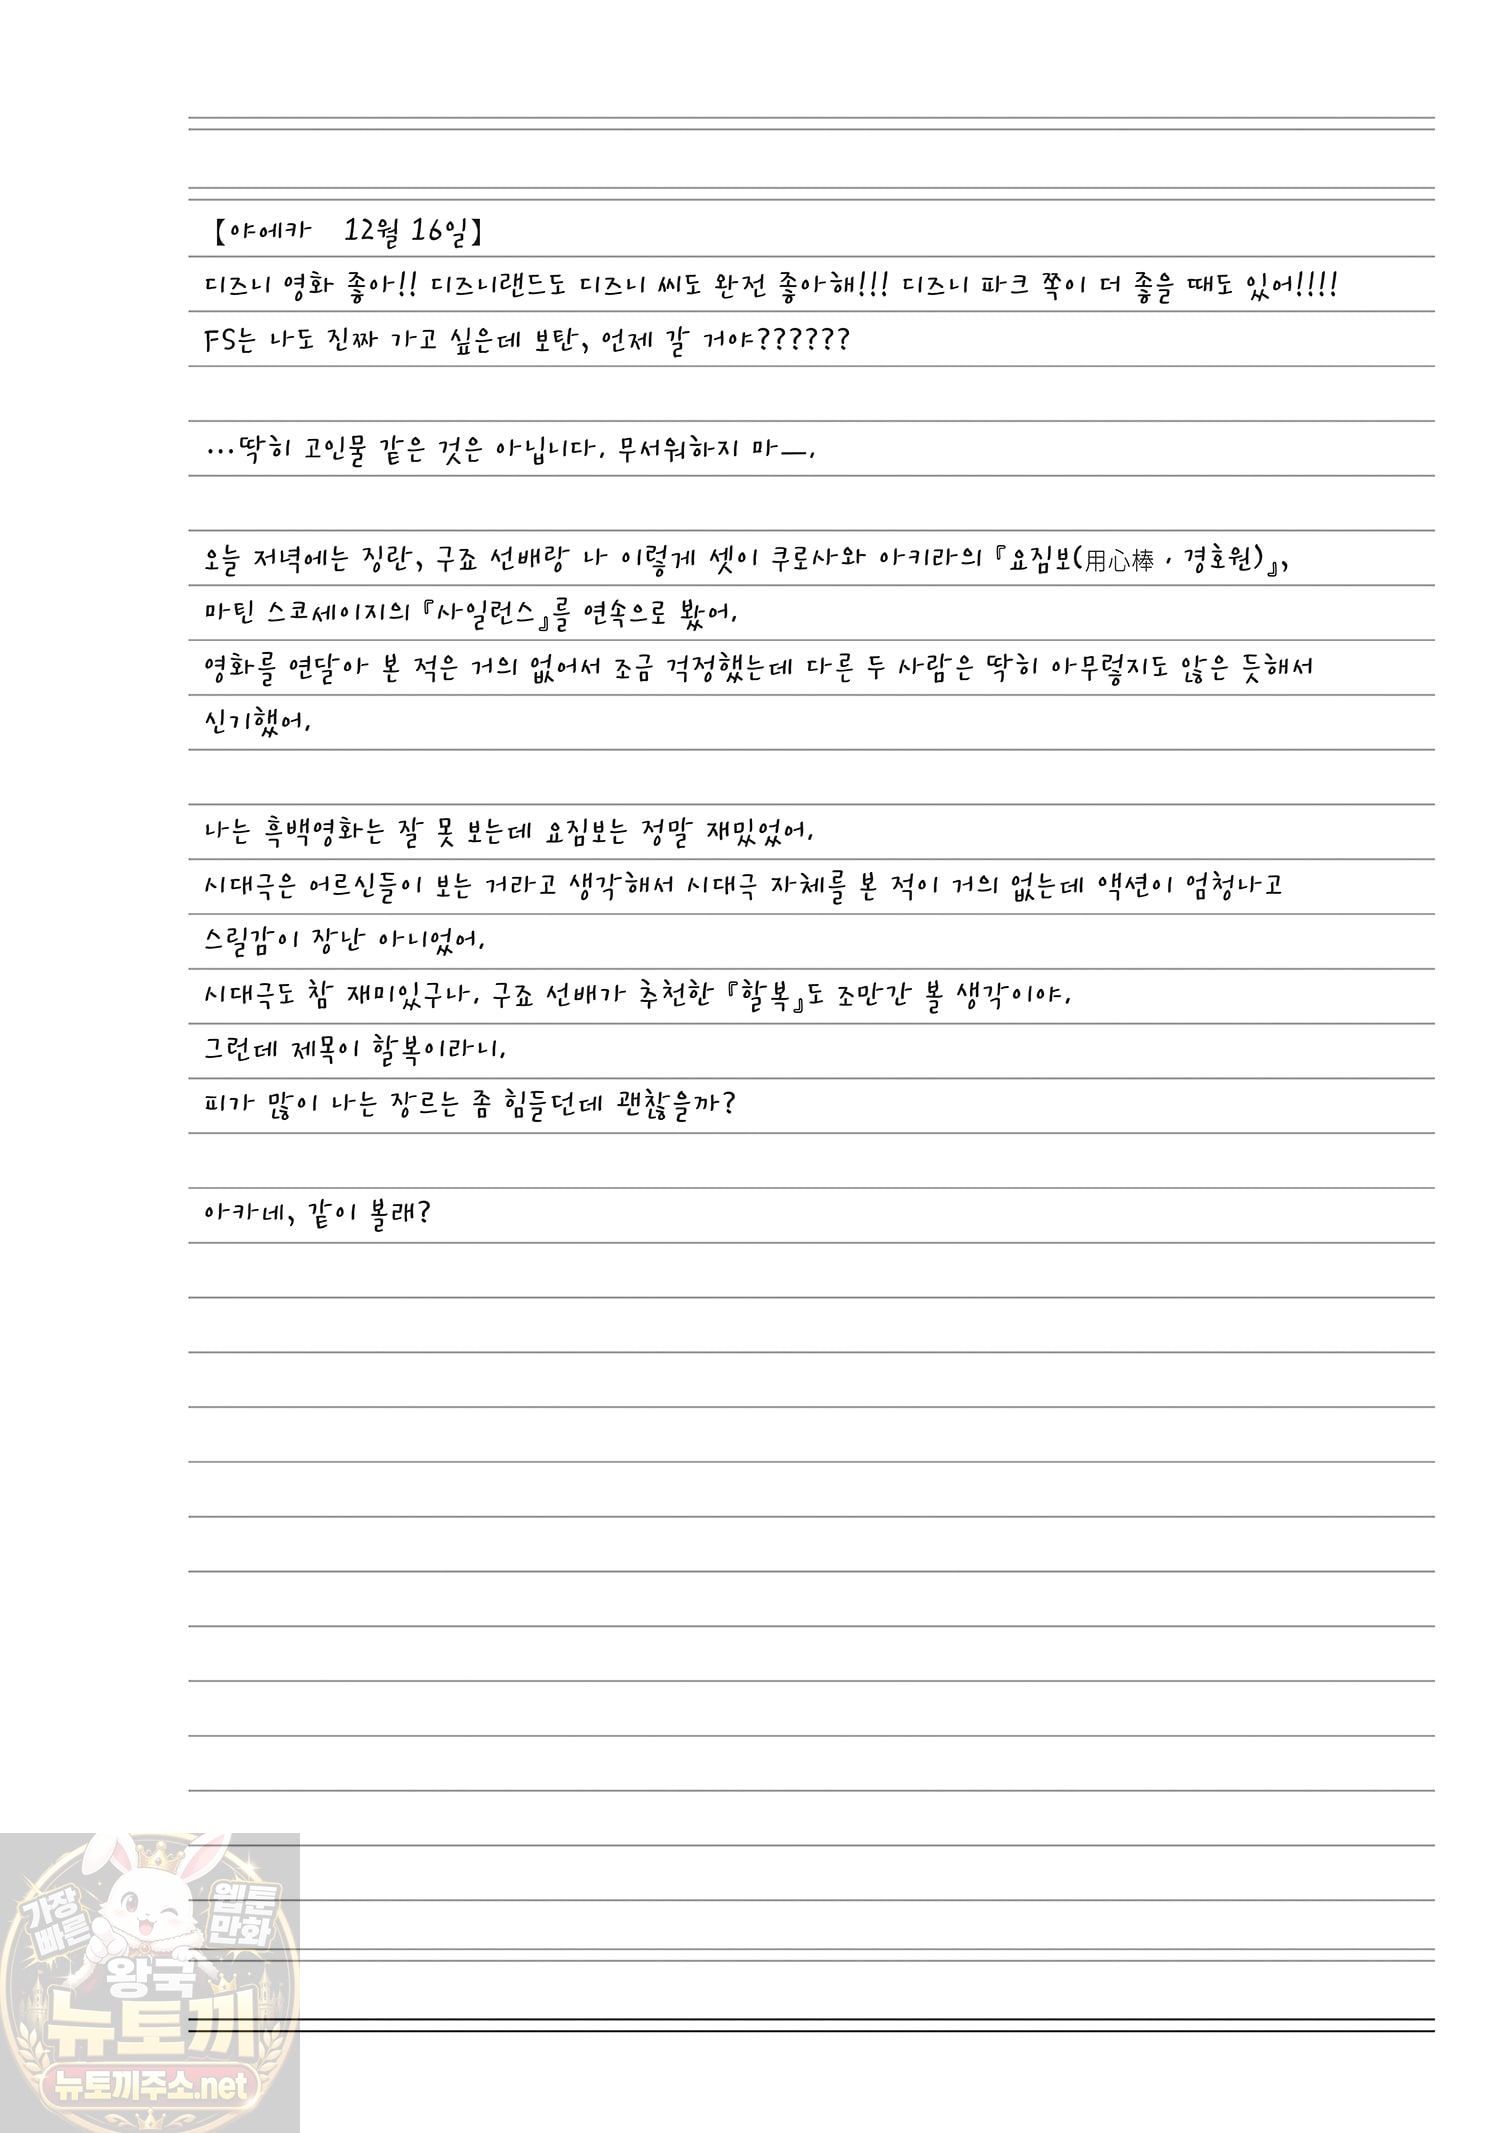 【야에카 12월 16일】
디즈니 영화 좋아!! 디즈니랜드도 디즈니 씨도 완전 좋아해!!! 디즈니 파크 쪽이 더 좋을 때도 있어!!!!
FS는 나도 진짜 가고 싶은데 보탄, 언제 갈 거야??????
…딱히 고인물 같은 것은 아닙니다. 무서워하지 마—.
오늘 저녁에는 징란, 구죠 선배랑 나 이렇게 셋이 쿠로사와 아키라의 『요짐보(用心棒 · 경호원)』,
마틴 스코세이지의 『사일런스』를 연속으로 봤어.
영화를 연달아 본 적은 거의 없어서 조금 걱정했는데 다른 두 사람은 딱히 아무렇지도 않은 듯해서
신기했어.
나는 흑백영화는 잘 못 보는데 요짐보는 정말 재밌었어.
시대극은 어르신들이 보는 거라고 생각해서 시대극 자체를 본 적이 거의 없는데 액션이 엄청나고
스릴감이 장난 아니었어.
시대극도 참 재미있구나. 구죠 선배가 추천한 『할복』도 조만간 볼 생각이야.
그런데 제목이 할복이라니.
피가 많이 나는 장르는 좀 힘들던데 괜찮을까?
아카네, 같이 볼래?
가장
빠른
웹툰
만화
왕국
뉴토끼
뉴토끼주소.net